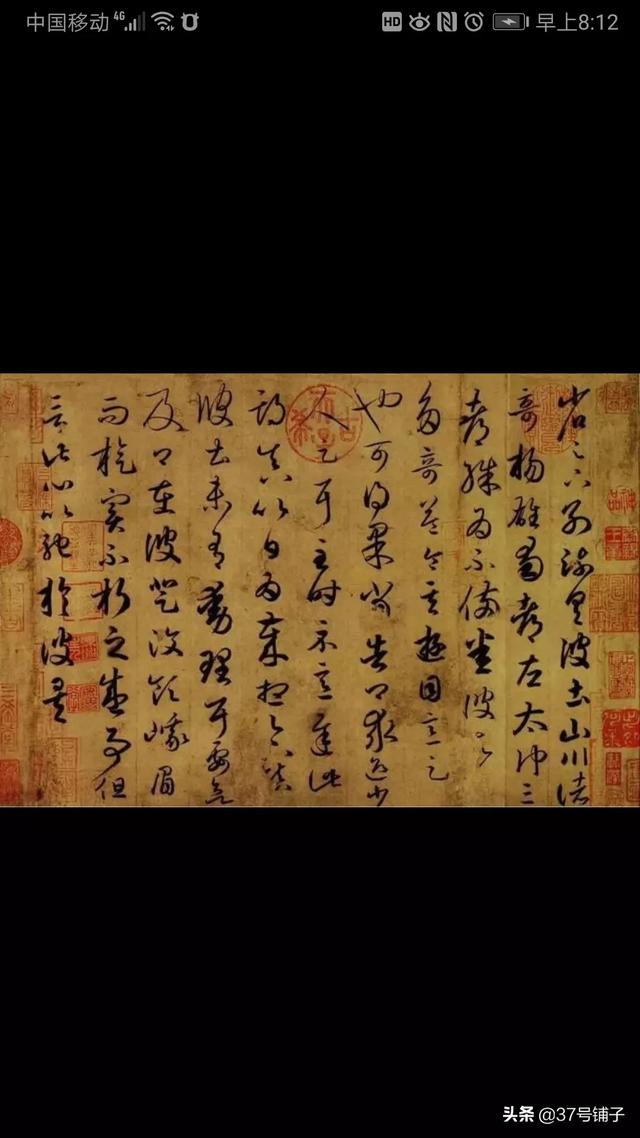 中国移动 4G HD 早上8:12
省足下別疏具彼土山川諸
奇楊雄蜀都左太沖三
都殊爲不備悉彼故
多奇益令其遊目意足
也可得果當告卿求迎少
人足耳至時示意遲此
期真以日爲歲想足下鎮
彼土未有動理耳要欲
及卿在彼登汶領峨眉
而旋實不朽之盛事但
言此心以馳於彼矣
头条 @37号铺子